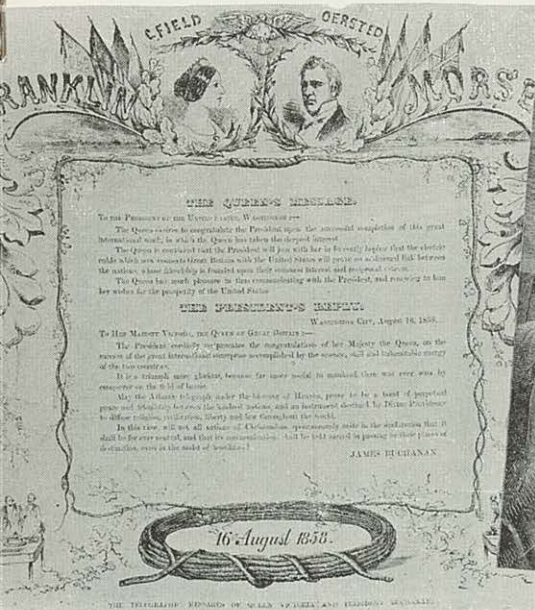 C. FIELD OERSTED
FRANKLIN MORSE
THE QUEEN'S MESSAGE.
TO THE PRESIDENT OF THE UNITED STATES, WASHINGTON :—
The Queen desires to congratulate the President upon the successful completion of this great
international work, in which the Queen has taken the deepest interest.
The Queen is convinced that the President will join with her in fervently hoping that the electric
cable which now connects Great Britain with the United States will prove an additional link between
the nations, whose friendship is founded upon their common interest and reciprocal esteem.
The Queen has much pleasure in thus communicating with the President, and renewing to him
her wishes for the prosperity of the United States.
THE PRESIDENT'S REPLY.
WASHINGTON CITY, August 16, 1858.
TO HER MAJESTY VICTORIA, THE QUEEN OF GREAT BRITAIN :—
The President cordially reciprocates the congratulations of her Majesty the Queen, on the
success of the great international enterprise accomplished by the science, skill and indomitable energy
of the two countries.
It is a triumph more glorious, because far more useful to mankind, than was ever won by
conqueror on the field of battle.
May the Atlantic telegraph, under the blessing of Heaven, prove to be a bond of perpetual
peace and friendship between the kindred nations, and an instrument destined by Divine Providence
to diffuse religion, civilization, liberty and law throughout the world.
In this view, will not all nations of Christendom spontaneously unite in the declaration that it
shall be for ever neutral, and that its communications shall be held sacred in passing to their places of
destination, even in the midst of hostilities?
JAMES BUCHANAN.
16 August 1858.
THE TELEGRAPHIC MESSAGES OF QUEEN VICTORIA AND PRESIDENT BUCHANAN.